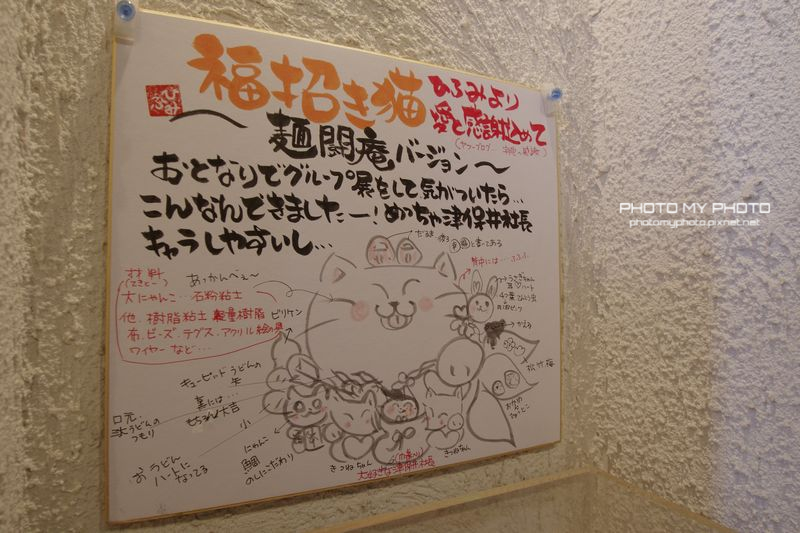 福招き猫
ひろみより
愛と感謝込めて
ひろみ
〜麺闘庵バージョン〜
おとなりでグループ展をして気がついたら…
こんなんできましたー！めっちゃ津保井社長
キャラしやすいし…
材料
あっかんべぇ〜
大にゃんこ…石粉粘土
他、樹脂粘土 軽量樹脂
布、ビーズ、テグス、アクリル絵の具
ワイヤーなど…
ビリケン
だるま
背中には…ふふふ
うさぎちゃん
耳♡ハート
かえる
松竹梅
おかめ
ひょっとこ
キューピッド うどんの
矢
裏には…
もちろん大吉
口元…
うどんの
つもり
小
にゃんこ
鯛
のしにこだわり
おうどん
ハートに
なってる
きつねちゃん
大好きな津保井社長
きつねちゃん
PHOTO MY PHOTO
photomyphoto.pixnet.net